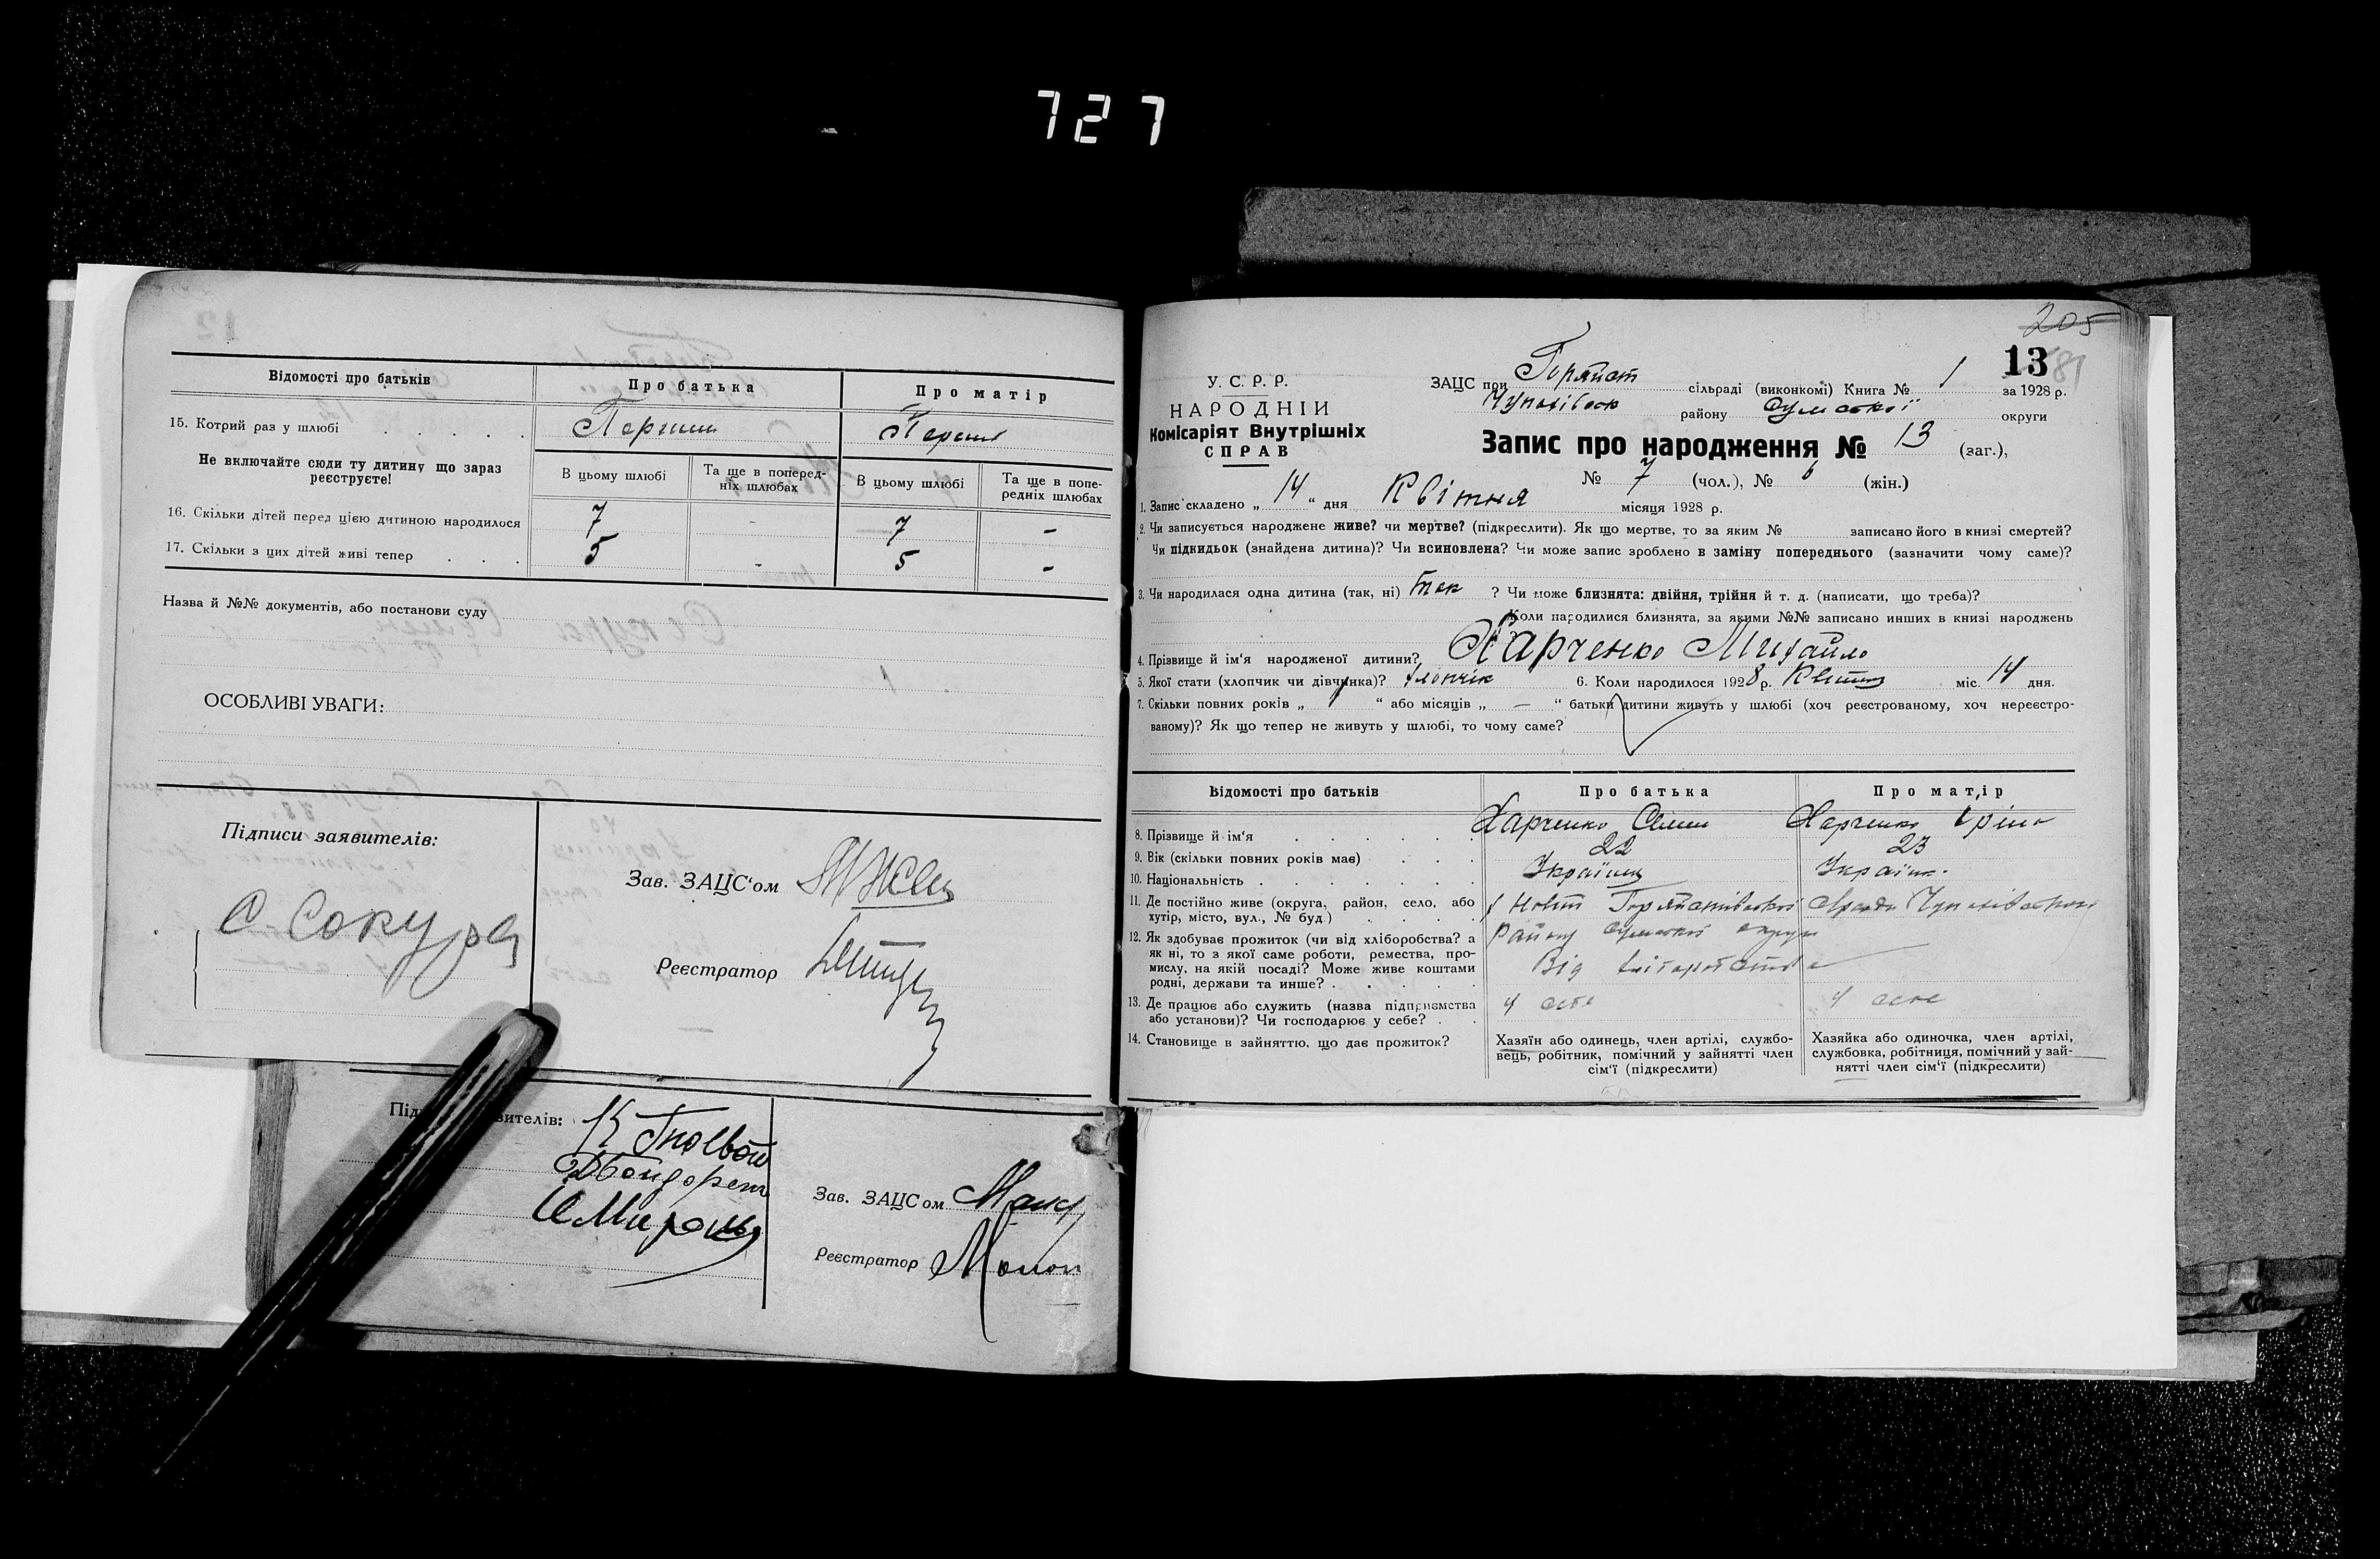 727
Відомості про батьків
Про батька
Про матір
15. Котрий раз у шлюбі
Перший
Перший
Не включайте сюди ту дитину що зараз
реєструєте!
В цьому шлюбі
Та ще в поперед-
ніх шлюбах
В цьому шлюбі
Та ще в попе-
редніх шлюбах
16. Скільки дітей перед цією дитиною народилося
7
-
7
-
17. Скільки з цих дітей живі тепер
5
-
5
-
Назва й №№ документів, або постанови суду
ОСОБЛИВІ УВАГИ:
Підписи заявителів:
С Сокура
Зав. ЗАЦС‘ом
Реєстратор
вителів:
Зав. ЗАЦСом
Реєстратор
205
13
У. С. Р. Р.
НАРОДНІЙ
Комісаріят Внутрішніх
СПРАВ
ЗАЦС при сільраді (виконкомі) Книга № 1 за 1928 р.
району Сумської округи
Запис про народження № 13 (заг.),
№ 7 (чол.), № 6 (жін.)
1. Запис складено „ 14 “ дня Квітня місяця 1928 р.
2. Чи записується народжене живе? чи мертве? (підкреслити). Як що мертве, то за яким № записано його в книзі смертей?
Чи підкидьок (знайдена дитина)? Чи всиновлена? Чи може запис зроблено в заміну попереднього (зазначити чому саме)?
3. Чи народилася одна дитина (так, ні) Так ? Чи може близнята: двійня, трійня й т. д. (написати, що треба)?
Коли народилися близнята, за якими №№ записано инших в книзі народжень
4. Прізвище й ім‘я народженої дитини? Харченко Михайло
5. Якої стати (хлопчик чи дівчинка)? хлопчік 6. Коли народилося 1928 р. Квітня міс. 14 дня.
7. Скільки повних років „ 1 “ або місяців „ — “ батьки дитини живуть у шлюбі (хоч реєстрованому, хоч нереєстро-
ваному)? Як що тепер не живуть у шлюбі, то чому саме?
Відомості про батьків
Про батька
Про матір
8. Прізвище й ім‘я
Харченко Семен
Харченко Іріна
9. Вік (скільки повних років має)
22
23
10. Національність
Україн.
11. Де постійно живе (округа, район, село, або
хутір, місто, вул., № буд.)
Району Сумської округи
12. Як здобуває прожиток (чи від хліборобства? а
як ні, то з якої саме роботи, ремества, про-
мислу, на якій посаді? Може живе коштами
родні, держави та инше?
Від хліборобства
13. Де працює або служить (назва підприємства
або установи)? Чи господарює у себе?
У себе
У себе
14. Становище в зайняттю, що дає прожиток?
Хазяїн або одинець, член артілі, службо-
вець, робітник, помічний у зайнятті член
сім‘ї (підкреслити)
Хазяйка або одиночка, член артілі,
службовка, робітниця, помічний у зай-
нятті член сім‘ї (підкреслити)